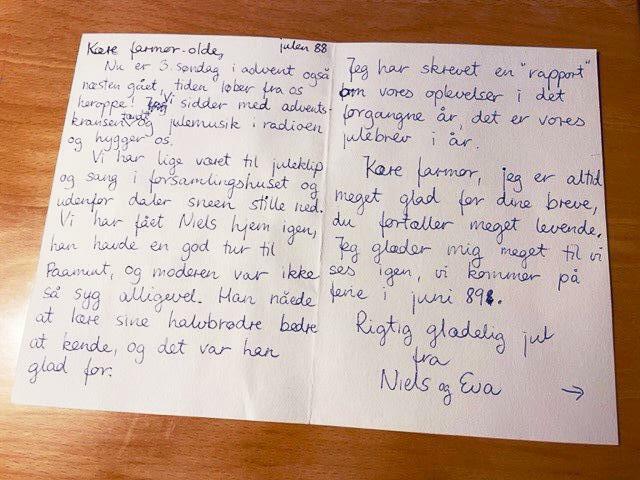 Kære farmor-olde,
julen 88
Nu er 3. søndag i advent også
næsten gået, tiden løber fra os
heroppe! Vi sidder med advents-
kransen tændt og julemusik i radioen
og hygger os.
Vi har lige været til juleklip
og sang i forsamlingshuset og
udenfor daler sneen stille ned.
Vi har fået Niels hjem igen,
han havde en god tur til
Paamiut, og moderen var ikke
så syg alligevel. Han nåede
at lære sine halvbrødre bedre
at kende, og det var han
glad for.
Jeg har skrevet en "rapport"
om vores oplevelser i det
forgangne år, det er vores
julebrev i år.
Kære farmor, jeg er altid
meget glad for dine breve,
du fortæller meget levende.
Jeg glæder mig meget til vi
ses igen, vi kommer på
ferie i juni 89.
Rigtig glædelig jul
fra
Niels og Eva
→